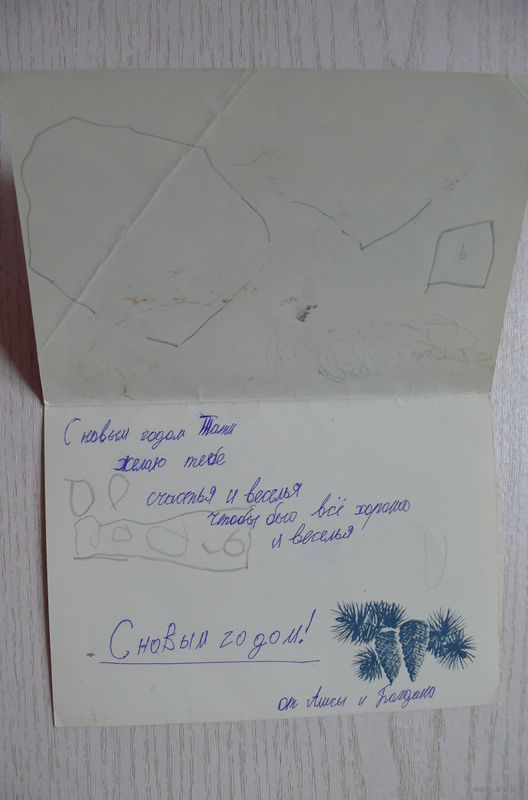 С новым годом Тани
желаю тебе
счастья и веселья
чтобы было всё хорошо
и веселья
С новым годом!
от Алисы и Богдана